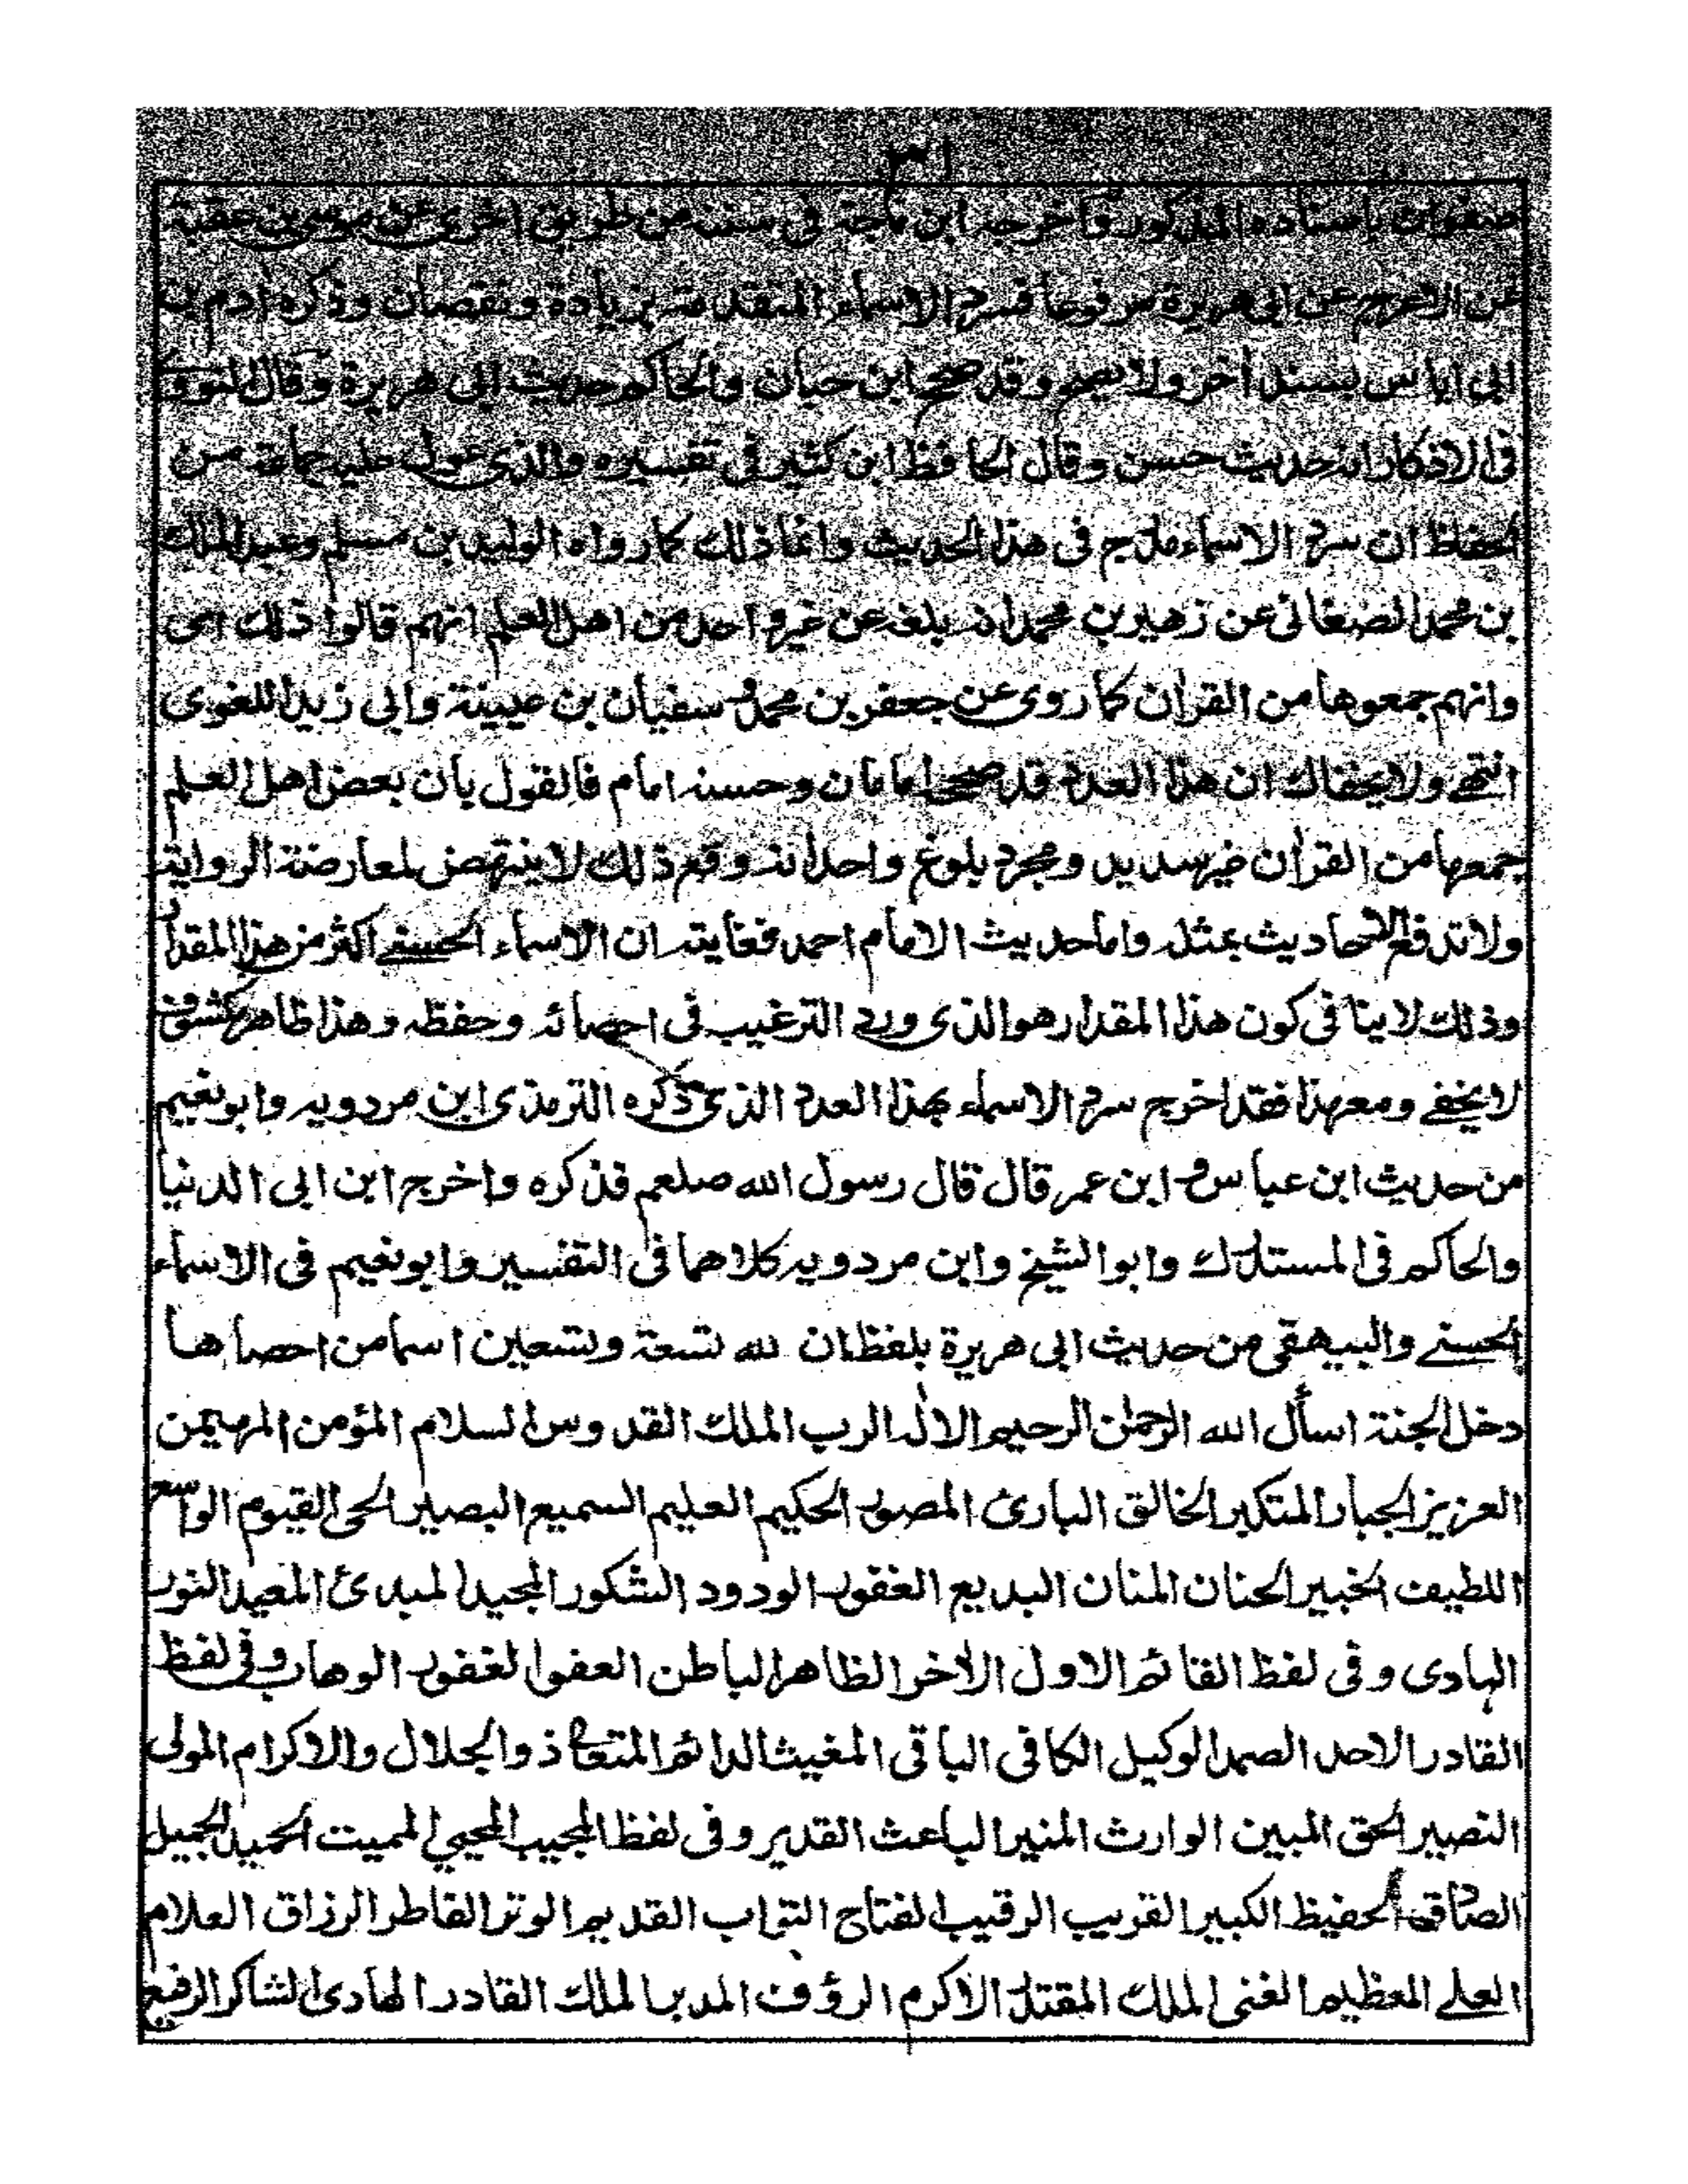 ٣١
صفوان باسناده المذكور واخرجه ابن ماجة فى سننه من طريق اخرى عن موسى بن عقبة
عن الاعرج عن ابى هريرة مرفوعا فسرد الاسماء المتقدمة بزيادة ونقصان وذكره ادم بن
ابى اياس بسند اخر ولا يصح وقد صححه ابن حبان والحاكم حديث ابى هريرة وقال النووى
فى الاذكار انه حديث حسن وقال الحافظ ابن كثير فى تفسيره والذى عول عليه جماعة من
الحفاظ ان سرد الاسماء مدرج فى هذا الحديث وانما ذلك كما رواه الوليد بن مسلم وعبد الملك
بن محمد الصنعانى عن زهير بن محمد انه بلغه عن غير واحد من اهل العلم انهم قالوا ذلك اى
وانهم جمعوها من القرأن كما روى عن جعفر بن محمد و سفيان بن عيينة وابى زيد اللغوى
انتهى ولا يخفاك ان هذا العدد قد صححه امامان وحسنه امام فالقول بان بعض اهل العلم
جمعها من القرأن غير سديد ومجرد بلوغ واحد انه وقع ذلك لا ينتهض لمعارضة الرواية
ولا تدفع الاحاديث بمثله واما حديث الامام احمد فغايته ان الاسماء الحسنے اكثر من هذا المقدار
وذلك لا ينافى كون هذا المقدار هو الذى ورد الترغيب فى احصائه وحفظه وهذا ظاهر مكشوف
لا يخفے ومع هذا فقد اخرج سرد الاسماء بهذا العدد الذى ذكره الترمذى ابن مردويه وابو نعيم
من حديث ابن عباس و ابن عمر قال قال رسول الله صلعم فذكره واخرج ابن ابى الدنيا
والحاكم فى المستدرك وابو الشيخ وابن مردويه كلاهما فى التفسير وابو نعيم فى الاسماء
الحسنے والبيهقى من حديث ابى هريرة بلفظ ان لله تسعة وتسعين اسما من احصاها
دخل الجنة اسأل الله الرحمٰن الرحيم الالٰه الرب الملك القدوس السلام المؤمن المهيمن
العزيز الجبار المتكبر الخالق البارئ المصور الحكيم العليم السميع البصير الحى القيوم الواسع
اللطيف الخبير الحنان المنان البديع الغفور الودود الشكور المجيد المبدئ المعيد النور
الهادى وفى لفظ القائم الاول الأخر الظاهر الباطن العفو الغفور الوهاب وفى لفظ
القادر الاحد الصمد الوكيل الكافى الباقى المغيث الدائم المتعال ذو الجلال والاكرام المولى
النصير الحق المبين الوارث المنير الباعث القدير وفى لفظ المجيب المحيي المميت الحميد الجميل
الصادق الحفيظ الكبير القريب الرقيب الفتاح التواب القديم الوتر الفاطر الرزاق العلام
العلے العظيم الغنى المليك المقتدر الاكرم الرؤف المدبر الملك القادر الهادى الشاكر الرفيع